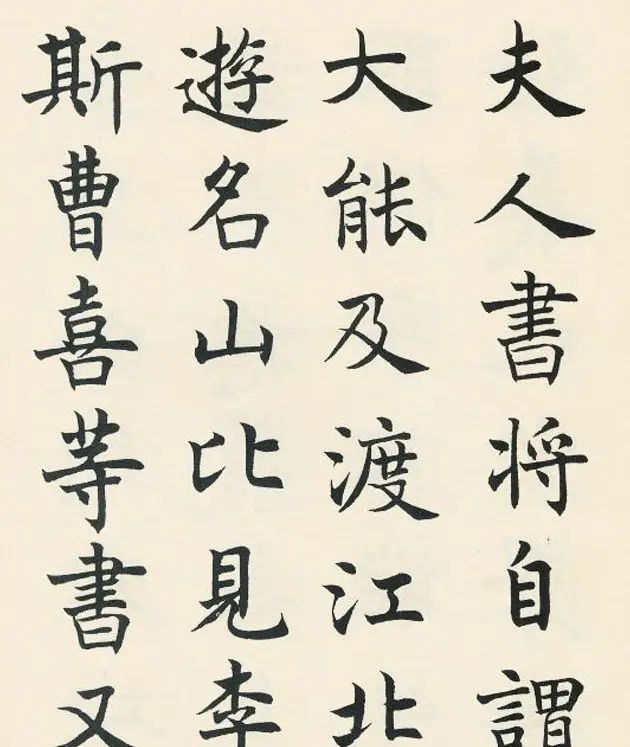 夫人書将自謂
大能及渡江北
遊名山比見李
斯曹喜等書又